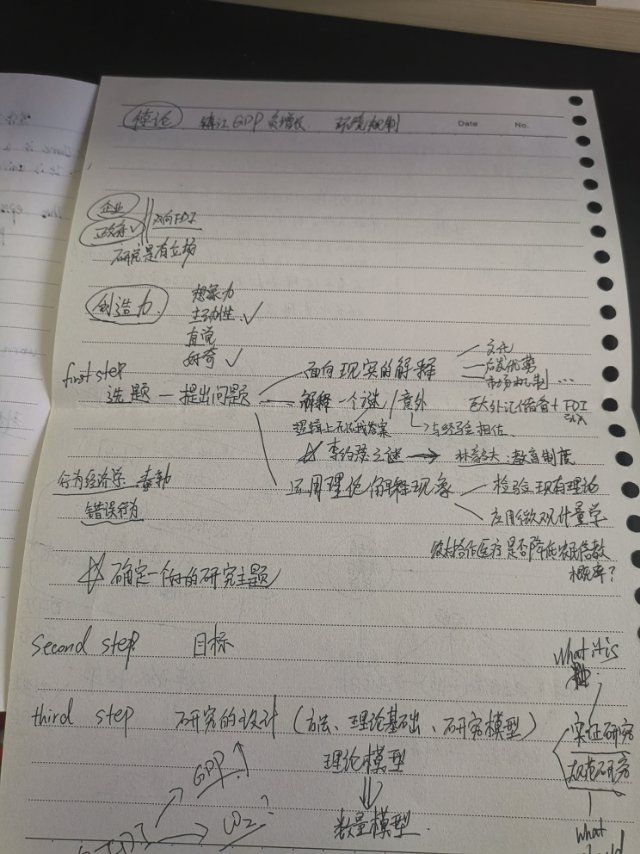 悖论 镇江GDP负增长 环境规制 Date No.
企业
政府✓ 双向FDI
研究是有立场
创造力 想象力
主动性 ✓
直觉
好奇 ✓
first step
选题 — 提出问题
面向现实的解释
文化
后发优势
市场机制 ...
解释一个谜/意外
巨大外汇储备 + FDI
逻辑上无法找答案
与经验相佐
李约瑟之谜 → 林毅夫:教育制度
运用理论解释现象
检验现有理论
应用微观计量学
农村合作医疗是否降低农民借款
概率?
行为经济学
错误行为
确定一个好的研究主题
second step 目标
third step 研究的设计(方法、理论基础、研究模型)
what it is
实证研究
规范研究
what
理论模型
⇓
数量模型
GDP↑
CO2?
FDI